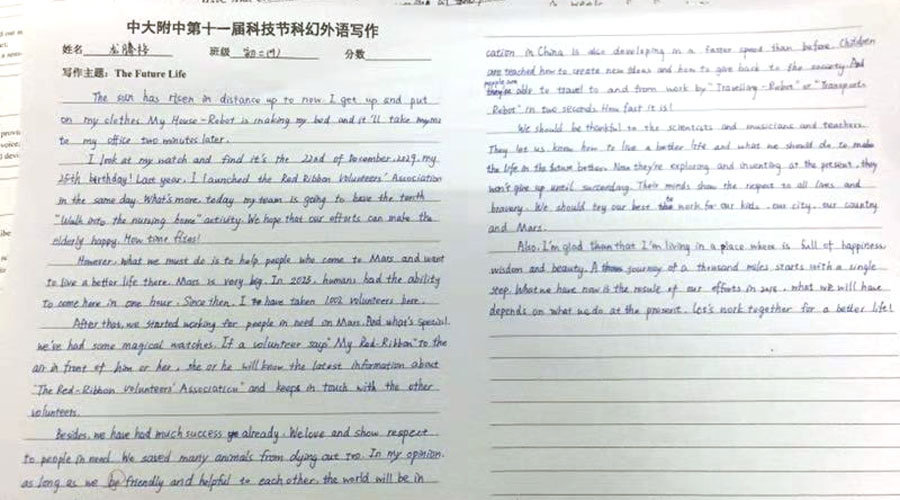 中大附中第十一届科技节科幻外语写作
姓名 龙腾 班级 初二(9) 分数
写作主题：The Future Life
The sun has risen in distance up to now. I get up and put
on my clothes. My House-Robot is making my bed and it'll take me
to my office two minutes later.
I look at my watch and find it's the 22nd of December, 2029, my
25th birthday! Last year, I launched the Red Ribbon Volunteers' Association
in the same day. What's more, today my team is going to have the tenth
"Walk into the nursing home" activity. We hope that our efforts can make the
elderly happy. How time flies!
However, what we must do is to help people who come to Mars and want
to live a better life there. Mars is very big. In 2025, humans had the ability
to come here in one hour. Since then, I have taken 1002 volunteers here.
After that, we started working for people in need on Mars. And what's special,
we've had some magical watches. If a volunteer says "My Red-Ribbon" to the
air in front of him or her, she or he will know the latest information about
"The Red-Ribbon Volunteers' Association" and keeps in touch with the other
volunteers.
Besides, we have had much success already. We love and show respect
to people in need. We saved many animals from dying out too. In my opinion,
as long as we be friendly and helpful to each other, the world will be in
cation in China is also developing in a faster speed than before. Children
are taught how to create new ideas and how to give back to the society. And
people are able to travel to and from work by "Travelling-Robot" or "Transports
Robot" in two seconds. How fast it is!
We should be thankful to the scientists and musicians and teachers.
They let us know how to live a better life and what we should do to make
the life in the future better. Now they're exploring and inventing at the present, they
won't give up until succeeding. Their minds show the respect to all lives and
bravery. We should try our best to work for our kids, our city, our country
and Mars.
Also, I'm glad than that I'm living in a place where is full of happiness,
wisdom and beauty. A journey of a thousand miles starts with a single
step. What we have now is the result of our efforts in , what we will have
depends on what we do at the present. Let's work together for a better life!